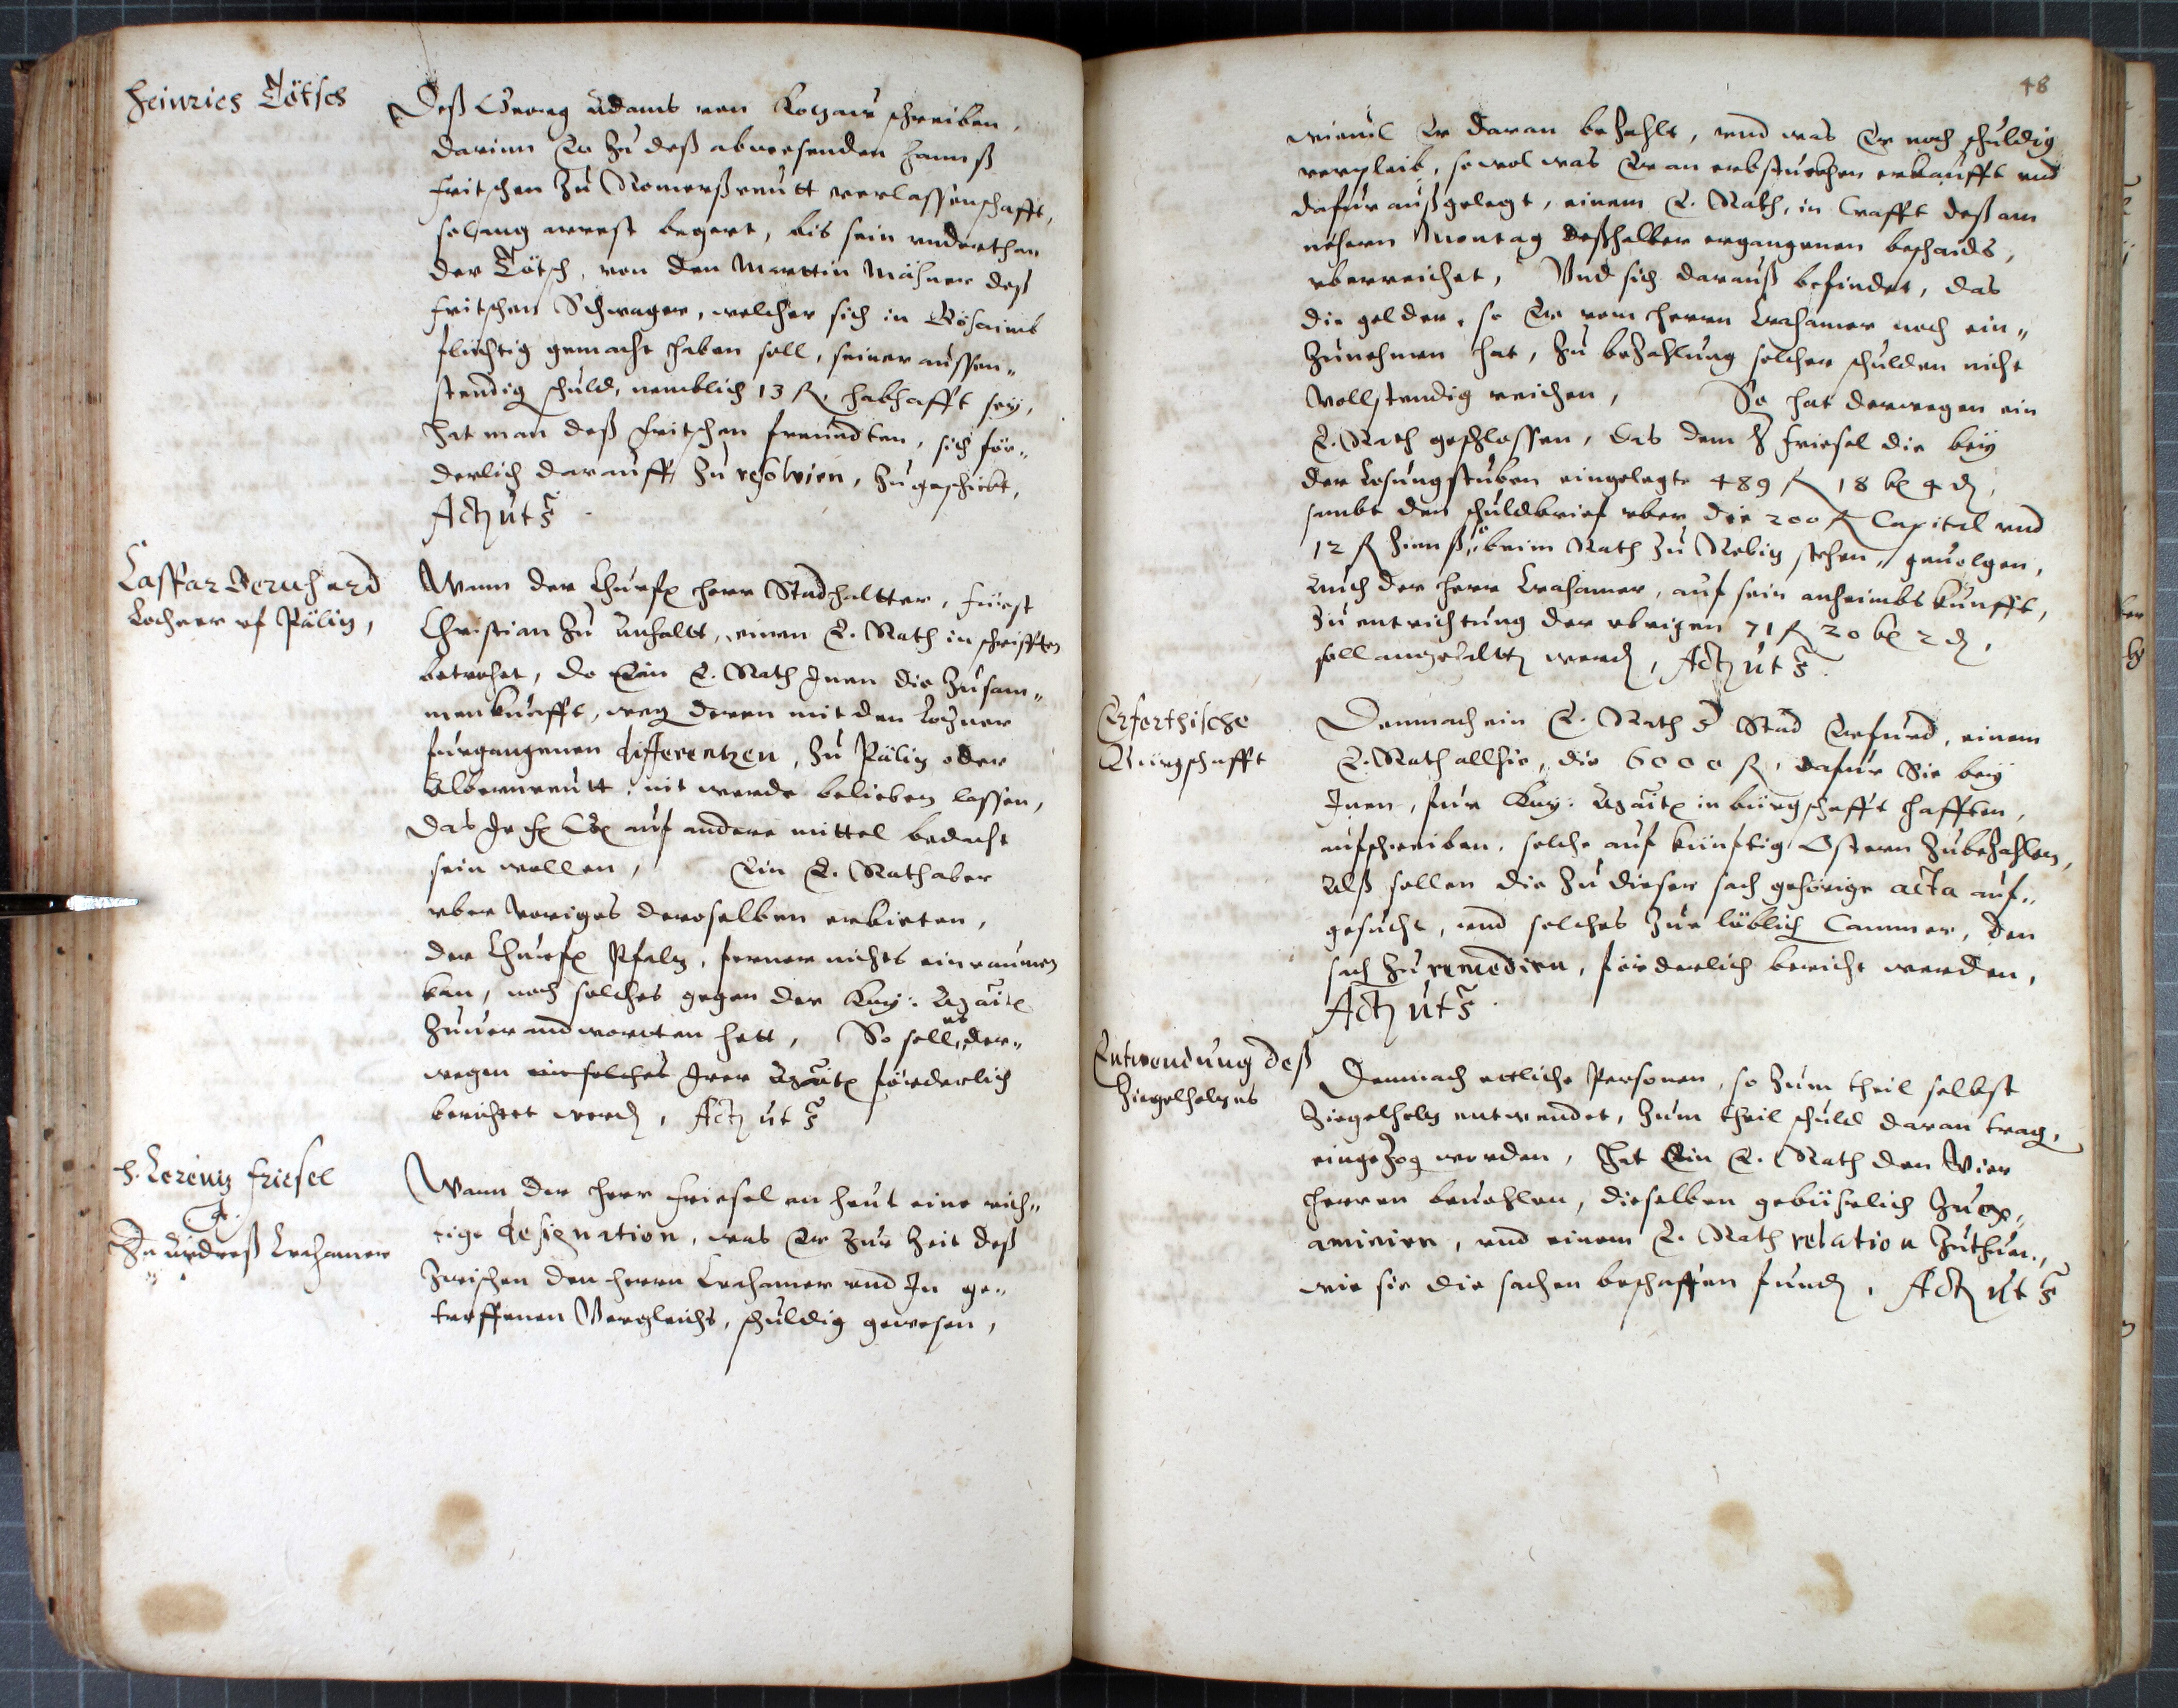 Heinrich Tötsch
Deß Georg Adams von Kotzau schreiben,
darinn Er zu deß abwesenden Hannß
Fritschen zu Romerßreutt verlassenschafft,
solang arrest begert, bis sein underthan
der Tötsch, von den Marttin Mähner deß
Fritschen Schwager, welcher sich in Böhaimb
flüchtig gemacht haben soll, seiner aussen„
stendig schuld, nemblich 13 fl. habhafft sey,
Hat man deß Fritschen freundten, sich för„
derlich darauff zu resolvirn, zugeschickt,
Actz ut s
Casspar Bernhard
Lochner uf Pälitz,
Wann der Churfl Herr Stadhaltter, Fürst
Christian zu Anhaltt, einen E. Rath in schrifften
betrohet, do Ein E. Rath Inen die zusam„
menkunfft, weg deren mit den Lochner
furgangenen differentzen, zu Pälitz oder
Albernreutt, nit werde belieben lassen,
das Ir fl Gl auf andere mittel bedacht
sein wollen, Ein E. Rath aber
uber voriges deroselben erbieten,
der Churfl Pfaltz, ferner nichts einraumen
kan, noch solches gegen der Kay: Maÿtl
zuverandwortten hett, So soll es der„
wegen solches Irer Maÿtl förderlich
berichtet werdn, Actz ut s
H. Lorentz Friesel
Cª.
H Andreß Lrahamer
Wann der Herr Friesel an heut eine rich„
tige designation, was Er zur Zeit deß
zwischen den Herrn Lrahamer und In ge„
troffenen Vergleichs, schuldig gewesen,
48
wieuil Er daran bezahlt, und was Er noch schuldig
verpleib, sowol was Er an erbstuckhen erkaufft und
dafur außgelegt, einem E. Rath, in Crafft deß am
nehern Montag deßhalber ergangenen beschaids,
uberreichet, Und sich darauß befindet, das
die gelder, so Er vom Herrn Lrahamer noch ein„
zunehmen hat, zu bezahlung solcher schulden nicht
vollstendig reichen, So hat derwegen ein
E. Rath geschlossen, das dem H Friesel die bey
der Losungstuben eingelegte 489 fl 18 kl 4 d,
sambt den schuldbrief uber die 200 fl Capital und
12 fl Zinnß, so beim Rath zu Redtwitz stehen, gevolgen,
Auch der Herr Lrahamer, auf sein anheimbs kunfft,
zu entrichtung der ubrigen 71 fl 20 kl 2 d,
soll angehaltn werdn, Actz ut s.
Erforthische
Bürgschafft
Demnach ein E. Rath d Stad Erfurd, einem
E. Rath allhie, die 6000 fl, dafur Sie bey
Inen, fur Kay: Maÿtl in bürgschafft hafften,
aufschreiben, solche auf künftig Ostern zubezahlen,
Alß sollen die zu dieser sach gehörige acta auf„
gesucht, und solches zur löblich Cammer, den
sach zu remedirn, förderlich bericht werden,
Actz ut s.
Entwendung deß
Ziegelholzes
Demnach ettliche Personen, so zum theil selbst
Ziegelholtz entwendet, zum theil schuld daran trag,
eingezog worden, Hat Ein E. Rath den Vier
Herren bevohlen, dieselben gebürlich zu ex„
aminirn, und einem E. Rath relation zuthun,
wie sie die sachen beschaffen fundn, Actz ut s